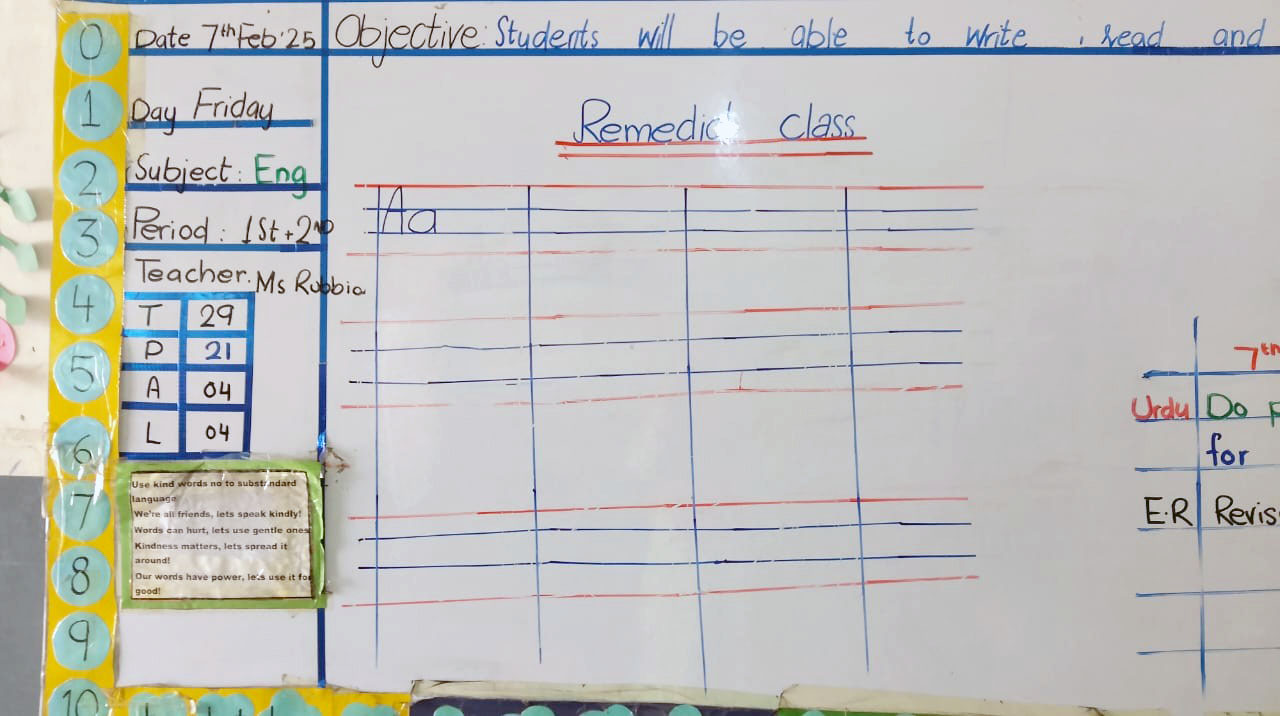 0
1
2
3
4
5
6
7
8
9
10
Date 7th Feb'25
Day Friday
Subject: Eng
Period: 1St+2ND
Teacher. Ms Rubbia
T 29
P 21
A 04
L 04
Use kind words no to substandard
language
We're all friends, lets speak kindly!
Words can hurt, lets use gentle ones
Kindness matters, lets spread it
around!
Our words have power, let's use it for
good!
Objective: Students will be able to write, read and
Remedial class
Aa
7th
Urdu Do
for
E.R Revis